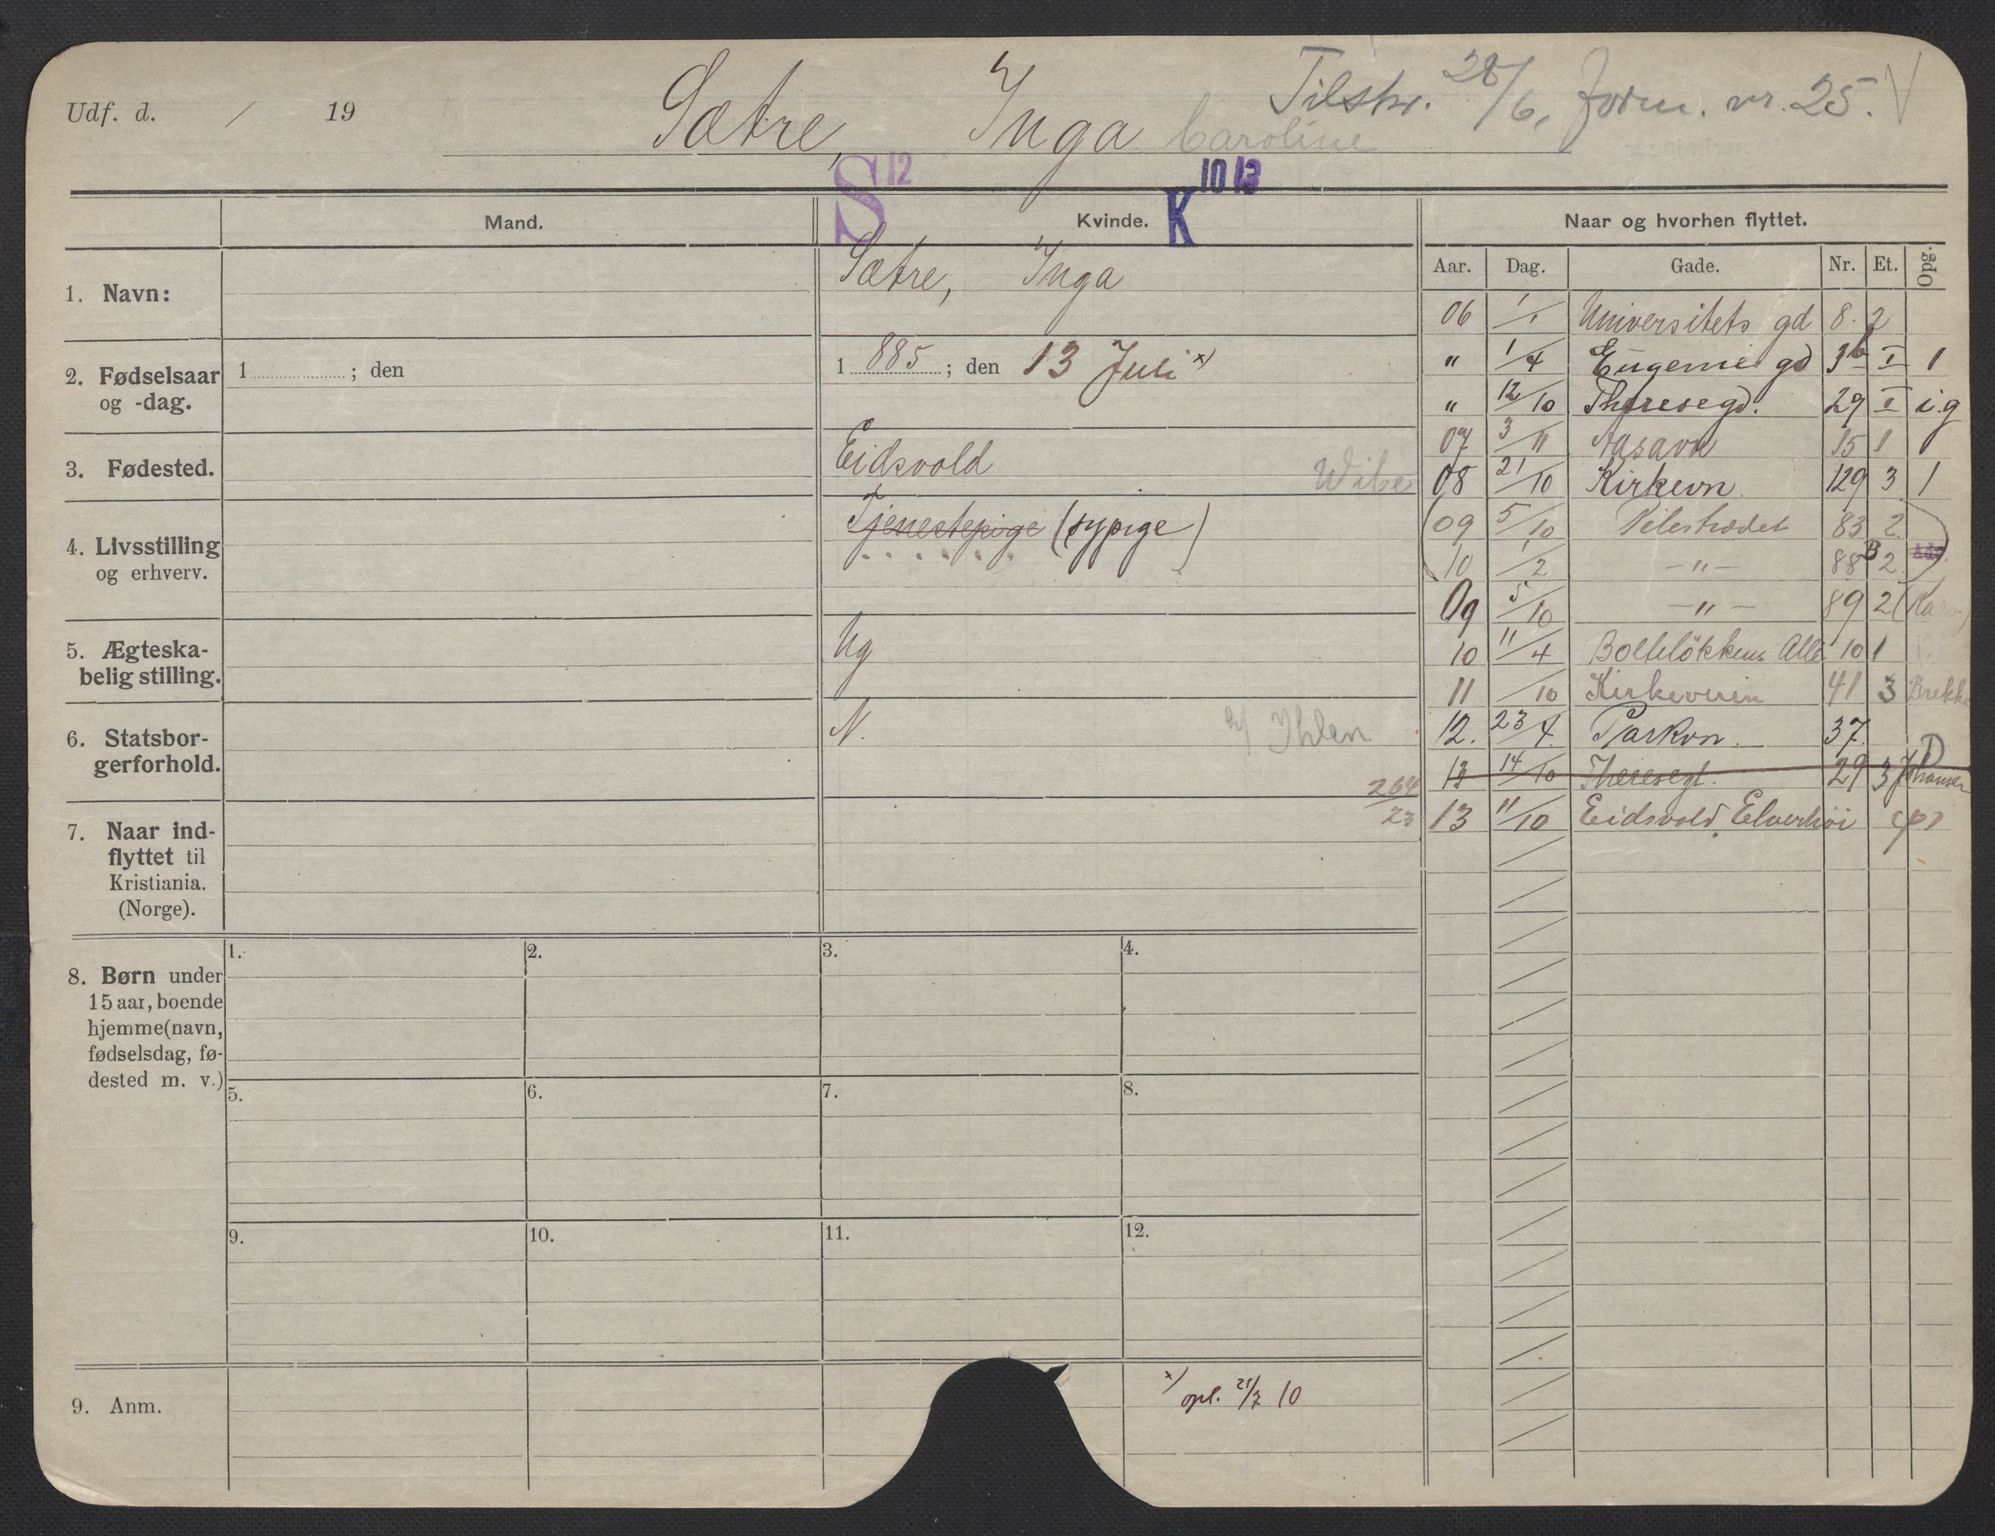 Udf. d. / 19 Sætre, Inga Caroline Tilstr. 28/6, form. nr. 25. V
S 12 K 10 13
Mand. Kvinde. Naar og hvorhen flyttet.
Aar. Dag. Gade. Nr. Et. Opg.
1. Navn: Sætre, Inga
2. Fødselsaar og -dag. 1 ; den 1 885 ; den 13 Juli x)
3. Fødested. Eidsvold Wibe
4. Livsstilling og erhverv. Tjenestepige (sypige)
5. Ægteska-
belig stilling. Ug
6. Statsbor-
gerforhold. N. Ihlen
264/23
7. Naar ind-
flyttet til
Kristiania.
(Norge).
06 1/1 Universitets gd 8. 2
" 1/4 Eugenie gd 3b I 1
" 12/10 Theresegd. 29 I i.g
07 3/11 Aasavn 15 1
08 21/10 Kirkevn. 129 3 1
(09 5/10 Pilestrædet 83 2.
(10 1/2 -"- 88B 2.
09 5/10 -"- 89 2
10 11/4 Bolteløkkens Alle 10 1
11 /10 Kirkeveien 41 3 Brekke
12. 23/4 Parkvn. 37.
13 14/10 Theresegt. 29 3 Johansen
13 11/10 Eidsvold, Elverhøi
8. Børn under
15 aar, boende
hjemme (navn,
fødselsdag, fø-
dested m. v.)
1. 2. 3. 4.
5. 6. 7. 8.
9. 10. 11. 12.
9. Anm. x) opl. 21/7 10